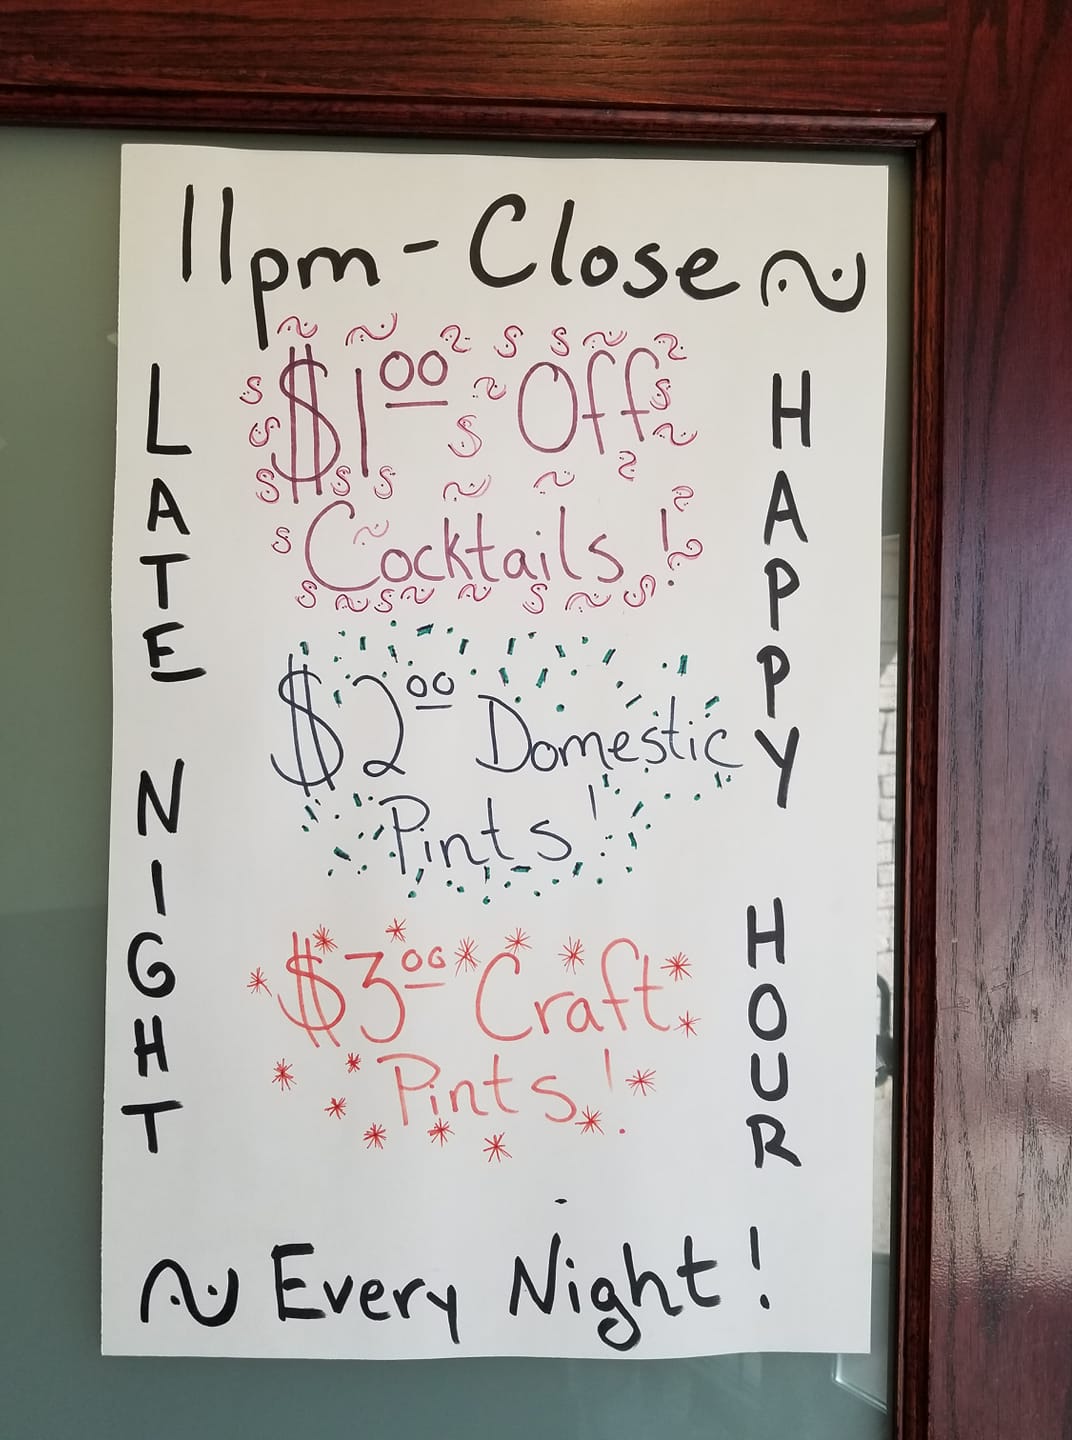 11pm - Close ~
LATE NIGHT
$1.00 Off
Cocktails!
$2.00 Domestic
Pints!
$3.00 Craft
Pints!
HAPPY HOUR
~ Every Night!